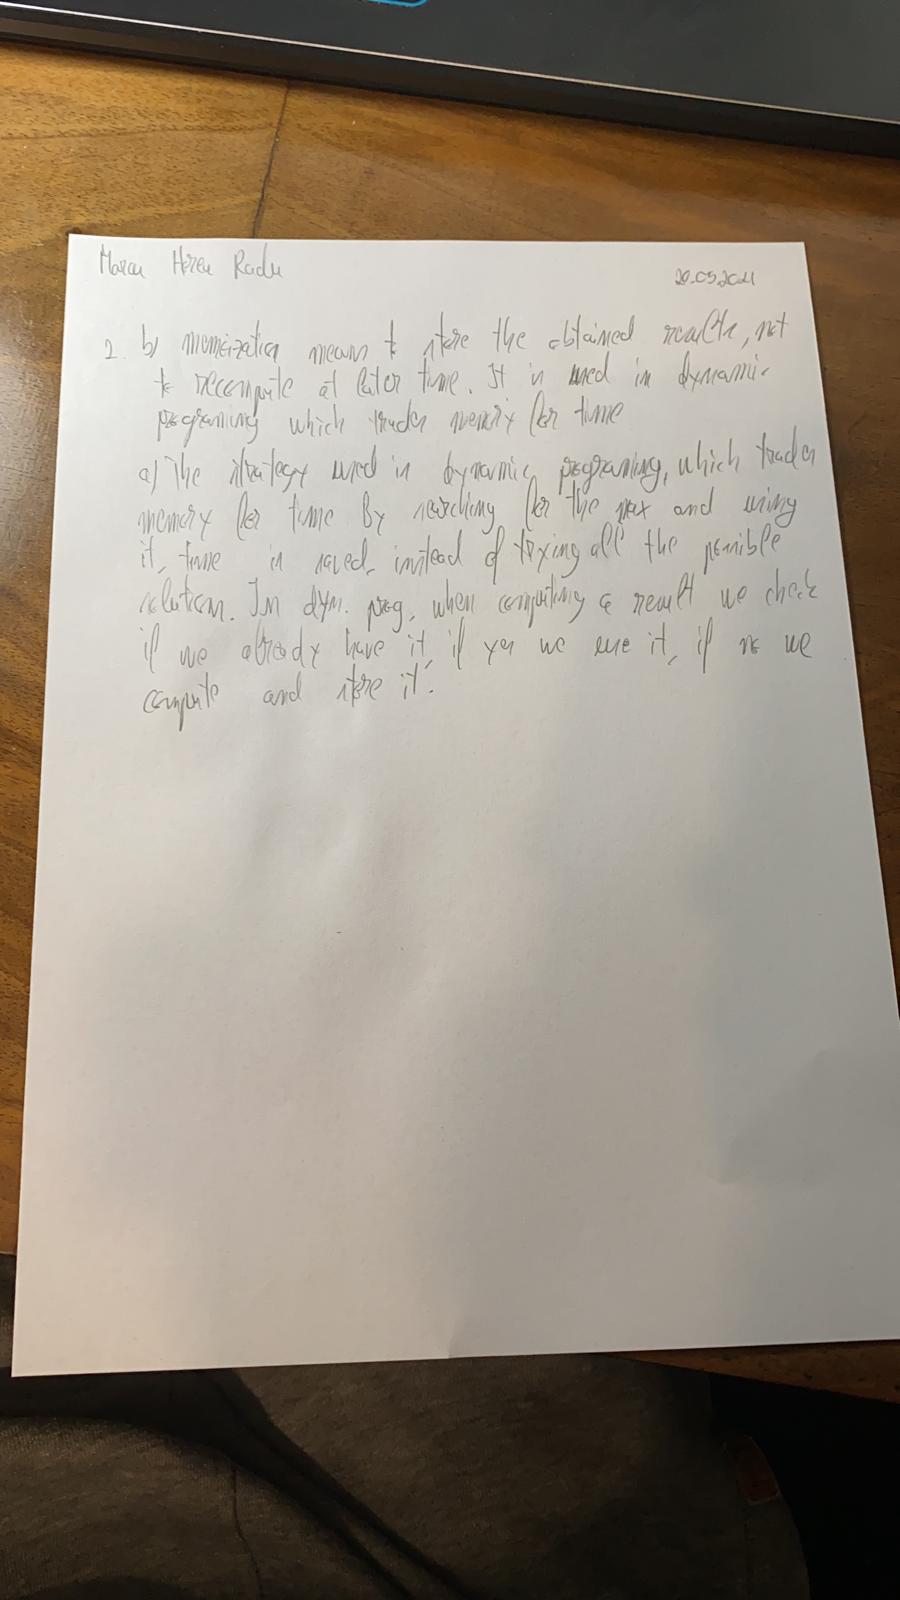 Marcu Horea Radu
20.05.2021
2. b) memoization means to store the obtained results, not
to recompute at later time. It is used in dynamic
programing which trades memory for time
a) The strategy used in dynamic programing, which trades
memory for time by searching for the max and using
it, time is saved, instead of trying all the possible
solution. In dym. prog, when computing a result we check
if we already have it, if yes we use it, if no we
compute and store it.